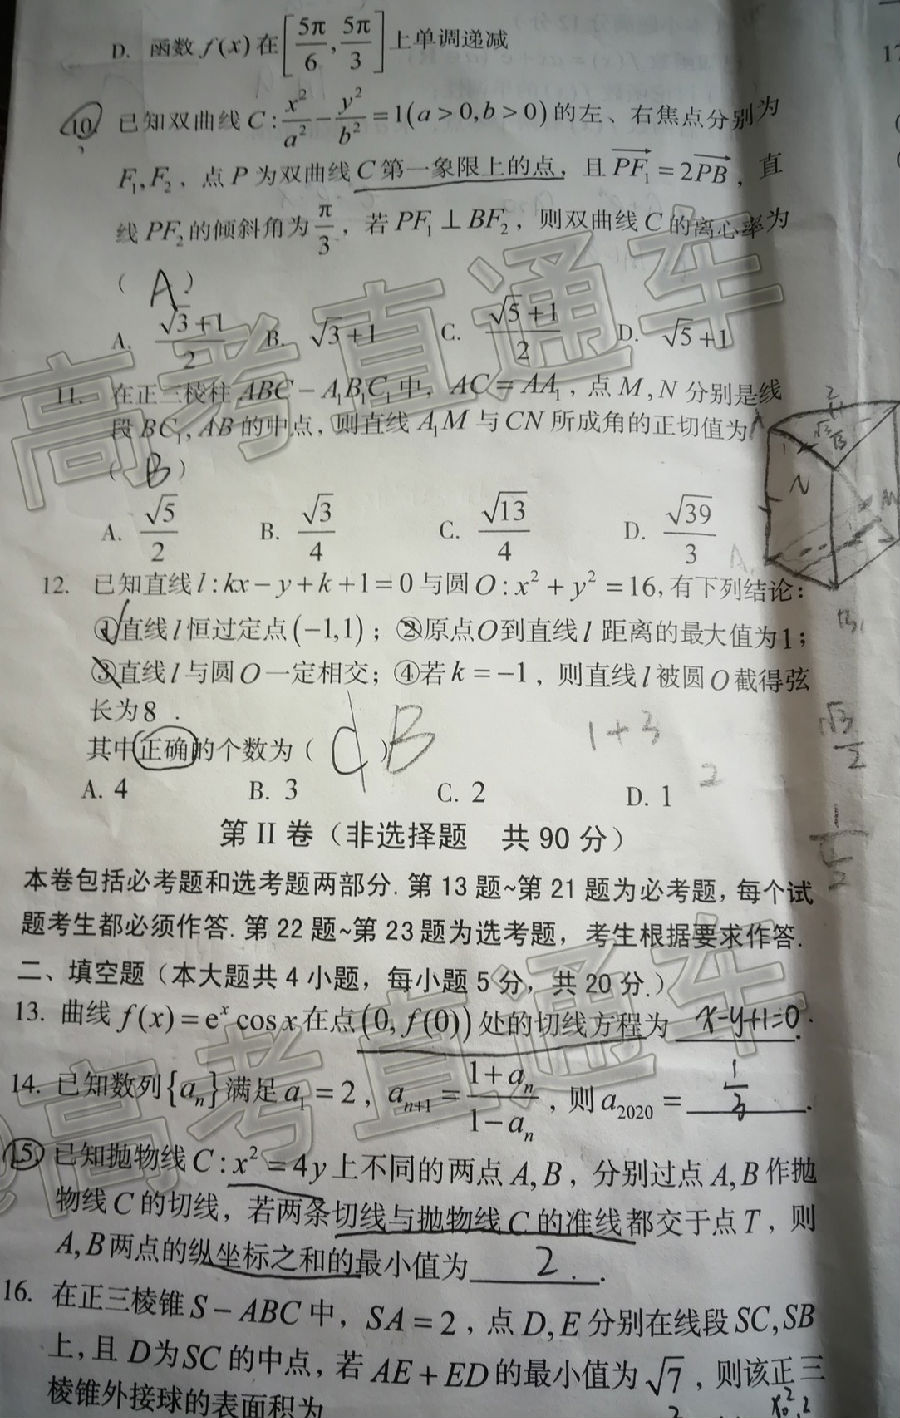 D. 函数 f(x) 在 [5π/6, 5π/3] 上单调递减
10. 已知双曲线 C : x²/a² − y²/b² = 1(a > 0, b > 0) 的左、右焦点分别为
F₁, F₂ , 点 P 为双曲线 C 第一象限上的点, 且 PF₁ = 2PB , 直
线 PF₂ 的倾斜角为 π/3 , 若 PF₁ ⊥ BF₂ , 则双曲线 C 的离心率为
( A )
A. (√3+1)/2 B. √3+1 C. (√5+1)/2 D. √5+1
11. 在正三棱柱 ABC − A₁B₁C₁ 中, AC = AA₁ , 点 M, N 分别是线
段 BC₁, AB 的中点, 则直线 A₁M 与 CN 所成角的正切值为
( B )
A. √5/2 B. √3/4 C. √13/4 D. √39/3
12. 已知直线 l : kx − y + k + 1 = 0 与圆 O : x² + y² = 16, 有下列结论:
①直线 l 恒过定点 (−1,1) ; ②原点 O 到直线 l 距离的最大值为 1 ;
③直线 l 与圆 O 一定相交; ④若 k = −1 , 则直线 l 被圆 O 截得弦
长为 8 .
其中正确的个数为 ( ) B 1+3
A. 4 B. 3 C. 2 D. 1
第 II 卷（非选择题 共 90 分）
本卷包括必考题和选考题两部分. 第 13 题~第 21 题为必考题, 每个试
题考生都必须作答. 第 22 题~第 23 题为选考题, 考生根据要求作答.
二、填空题（本大题共 4 小题, 每小题 5 分, 共 20 分.）
13. 曲线 f(x) = eˣ cos x 在点 (0, f(0)) 处的切线方程为 x-y+1=0 .
14. 已知数列 {aₙ} 满足 a₁ = 2 , aₙ₊₁ = (1+aₙ)/(1−aₙ) , 则 a₂₀₂₀ = 1/3 .
15. 已知抛物线 C : x² = 4y 上不同的两点 A, B , 分别过点 A, B 作抛
物线 C 的切线, 若两条切线与抛物线 C 的准线都交于点 T , 则
A, B 两点的纵坐标之和的最小值为 2 .
16. 在正三棱锥 S − ABC 中, SA = 2 , 点 D, E 分别在线段 SC, SB
上, 且 D为SC 的中点, 若 AE + ED 的最小值为 √7 , 则该正三
棱锥外接球的表面积为
高考直通车
高考直通车